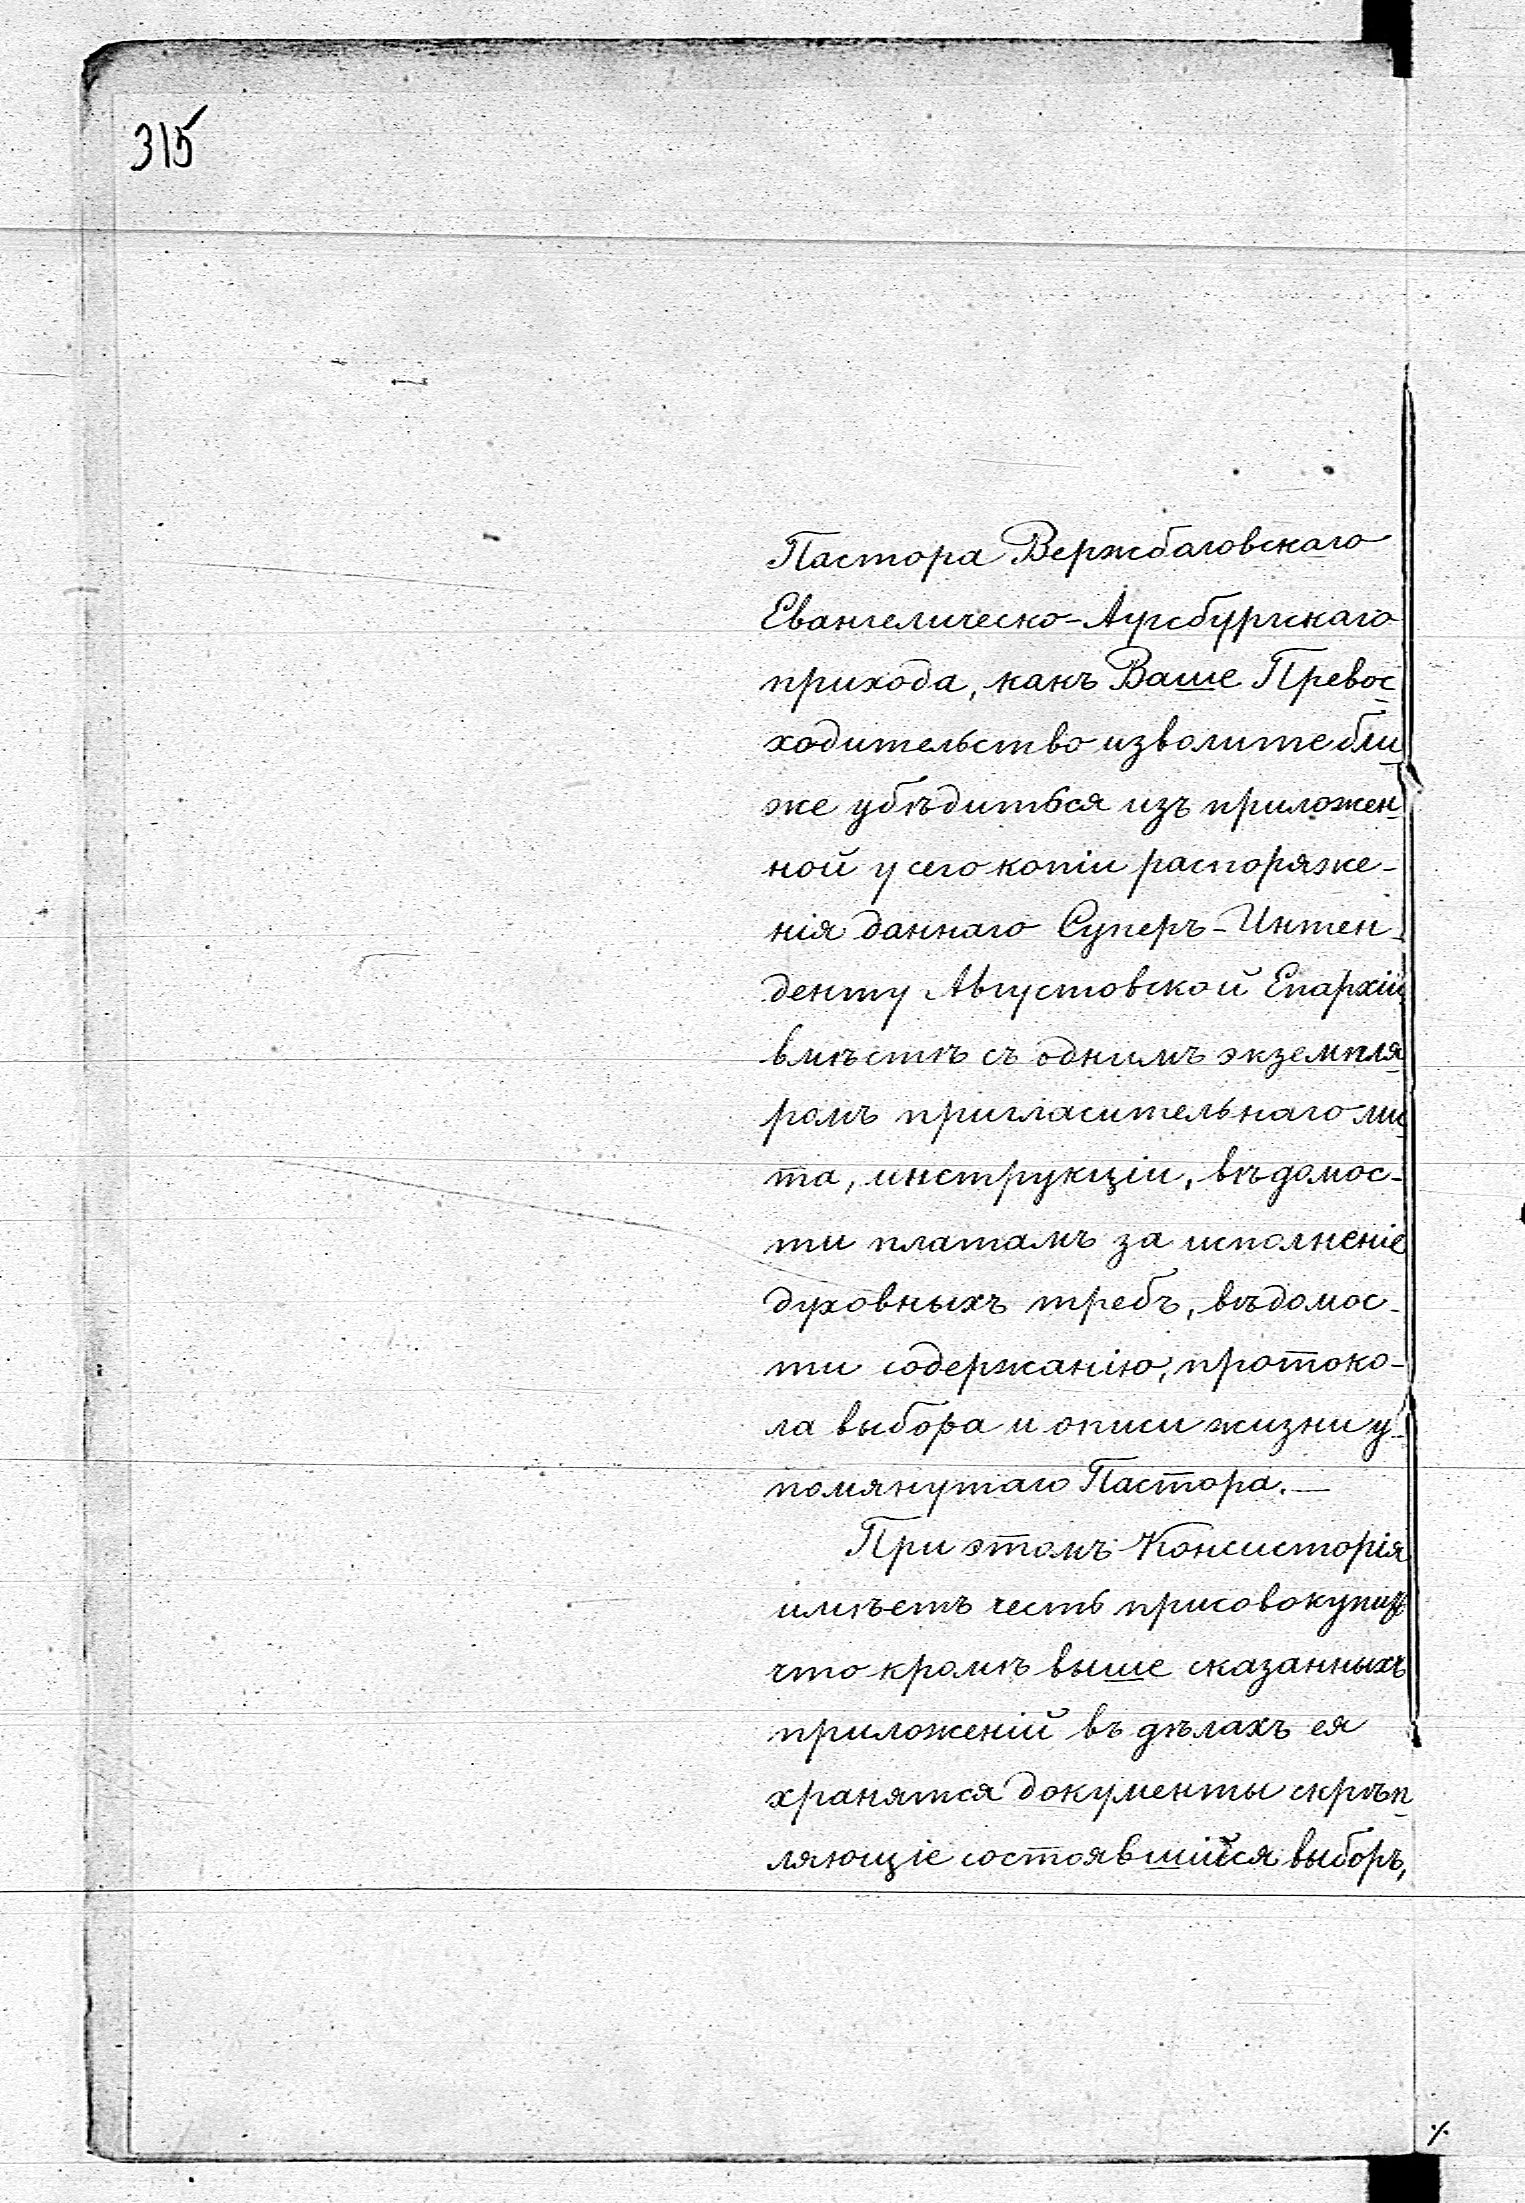 315
Пастора Вержбаловскаго
Евангелическо-Аугсбургскаго
прихода, какъ Ваше Превос-
ходительство изволите бли-
же убѣдиться изъ приложен-
ной у сего копіи распоряже-
нія даннаго Суперъ-Интен-
денту Августовской Епархіи
вмѣстѣ съ однимъ экземпля-
ромъ пригласительнаго лис-
та, инструкціи, вѣдомос-
ти платамъ за исполненіе
духовныхъ требъ, вѣдомос-
ти содержанію, протоко-
ла выбора и описи жизни у-
помянутаго Пастора.—
При этомъ Консисторія
имѣетъ честь присовокупить
что кромѣ выше сказанныхъ
приложеній въ дѣлахъ ея
хранятся документы скрѣп-
ляющіе состоявшійся выборъ,